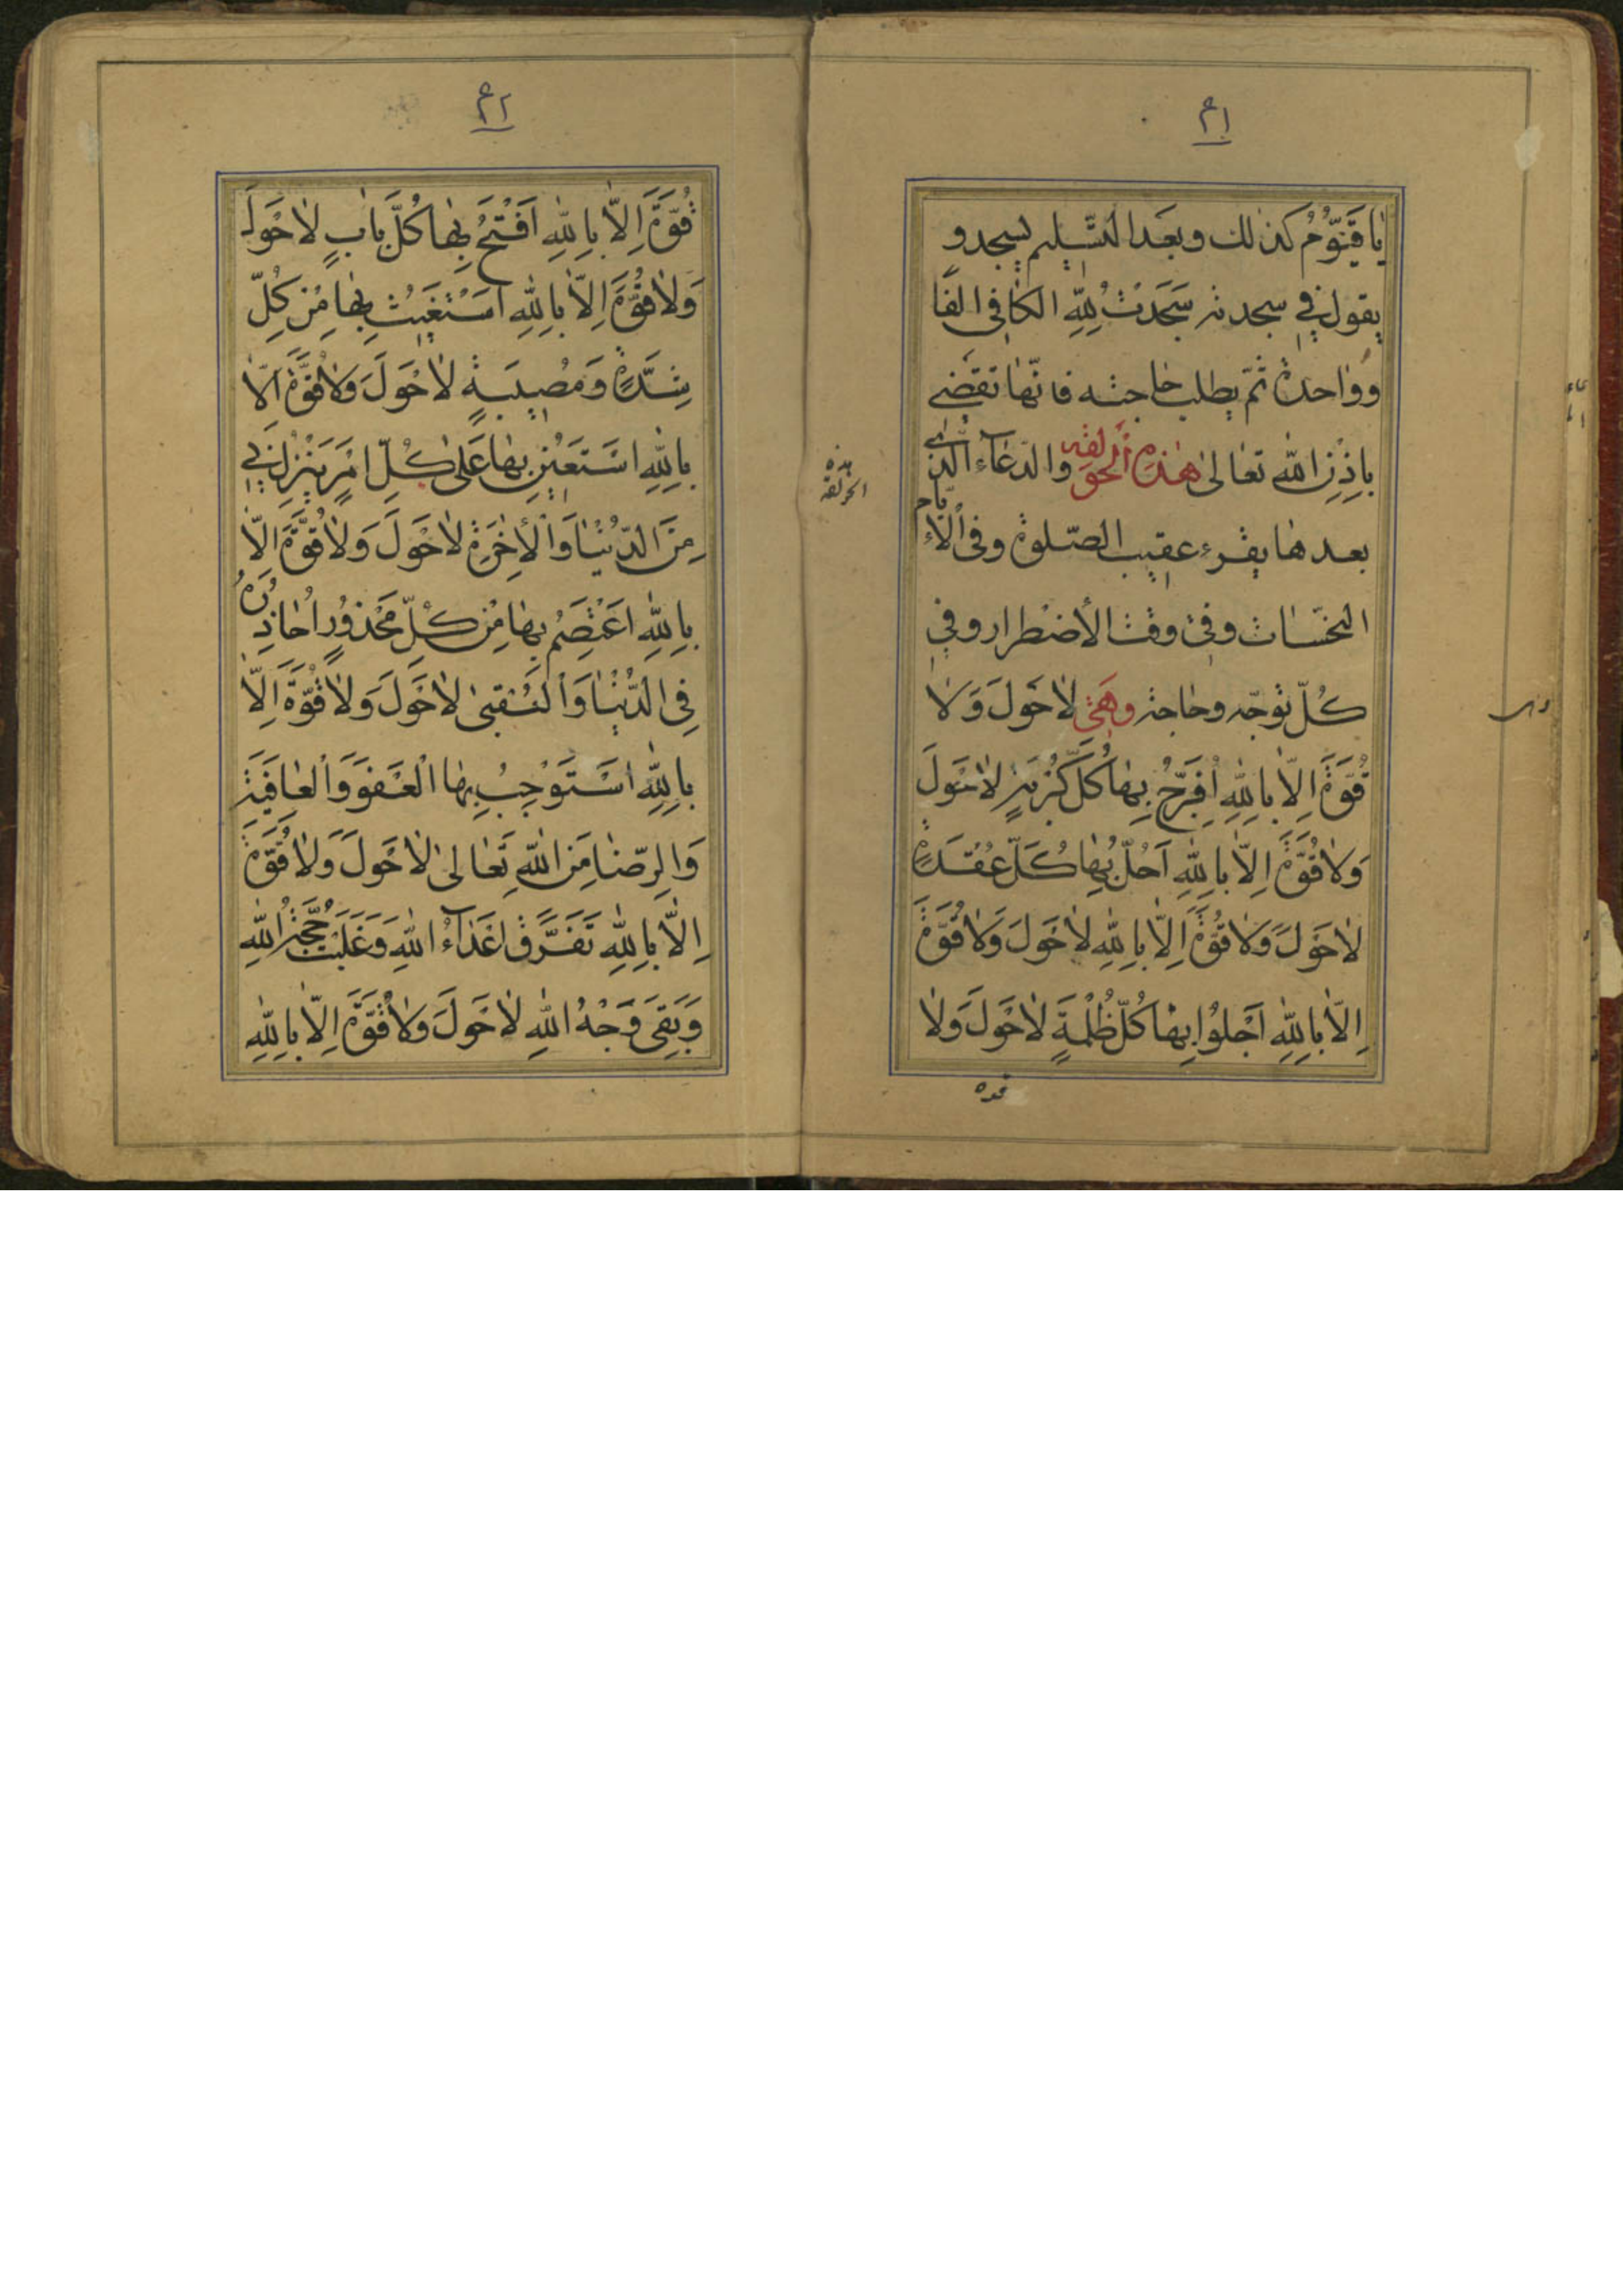 ٤١
يا قَيُّومُ كذلك وبعد التسليم يسجد و
يقول في سجدته سَجَدْتُ لِلّٰهِ الكافي الفًا
وواحدة ثمّ يطلب حاجته فانّها تقضى
بإذن الله تعالى هذه الحوقله والدّعاء الّذى
بعدها يقرء عقيب الصّلوة وفى الأيّام
النحسات وفى وقت الأضطرار وفي
كلّ توجّه وحاجة وهي لا حَوْلَ وَلا
قُوَّةَ اِلّا بِاللّٰهِ اُفَرِّجُ بِها كُلَّ كُرْبَةٍ لا حَوْلَ
وَلا قُوَّةَ اِلّا بِاللّٰهِ اَحُلُّ بِها كُلَّ عُقْدَةٍ
لا حَوْلَ وَلا قُوَّةَ اِلّا بِاللّٰهِ لا حَوْلَ وَلا قُوَّةَ
اِلّا بِاللّٰهِ اَجْلُوا بِها كُلَّ ظُلْمَةٍ لا حَوْلَ وَلا
قوة
هذه
الحولقه
٤٢
قُوَّةَ اِلّا بِاللّٰهِ اَفْتَحُ بِها كُلَّ بابٍ لا حَوْلَ
وَلا قُوَّةَ اِلّا بِاللّٰهِ اَسْتَغيثُ بِها مِنْ كُلِّ
شِدَّةٍ وَمُصيبَةٍ لا حَوْلَ وَلا قُوَّةَ اِلّا
بِاللّٰهِ اَسْتَعينُ بِها عَلى كُلِّ اَمْرٍ يَنْزِلُ بي
مِنَ الدُّنْيا وَالْأخِرَةِ لا حَوْلَ وَلا قُوَّةَ اِلّا
بِاللّٰهِ اَعْتَصِمُ بِها مِنْ كُلِّ مَحْذُورٍ اُحاذِرُهُ
فِى الدُّنْيا وَالْعُقْبى لا حَوْلَ وَلا قُوَّةَ اِلّا
بِاللّٰهِ اَسْتَوْجِبُ بِهَا الْعَفْوَ وَالْعافِيَةَ
وَالرِّضا مِنَ اللّٰهِ تَعالى لا حَوْلَ وَلا قُوَّةَ
اِلّا بِاللّٰهِ تَفَرَّقَ اَعْداءُ اللّٰهِ وَغَلَبَتْ حُجَّةُ اللّٰهِ
وَبَقِىَ وَجْهُ اللّٰهِ لا حَوْلَ وَلا قُوَّةَ اِلّا بِاللّٰهِ